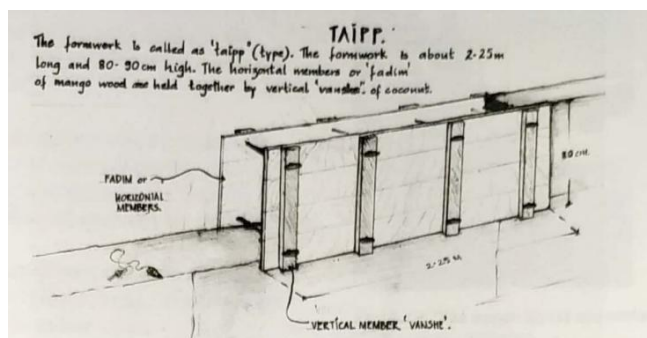 TAIPP.
The formwork is called as 'taipp' (type). The formwork is about 2.25m
long and 80-90cm high. The horizontal members or 'fadim'
of mango wood are held together by vertical 'vanshe'. of coconut.
FADIM or
HORIZONTAL
MEMBERS.
80 cm.
2.25 m
VERTICAL MEMBER 'VANSHE'.